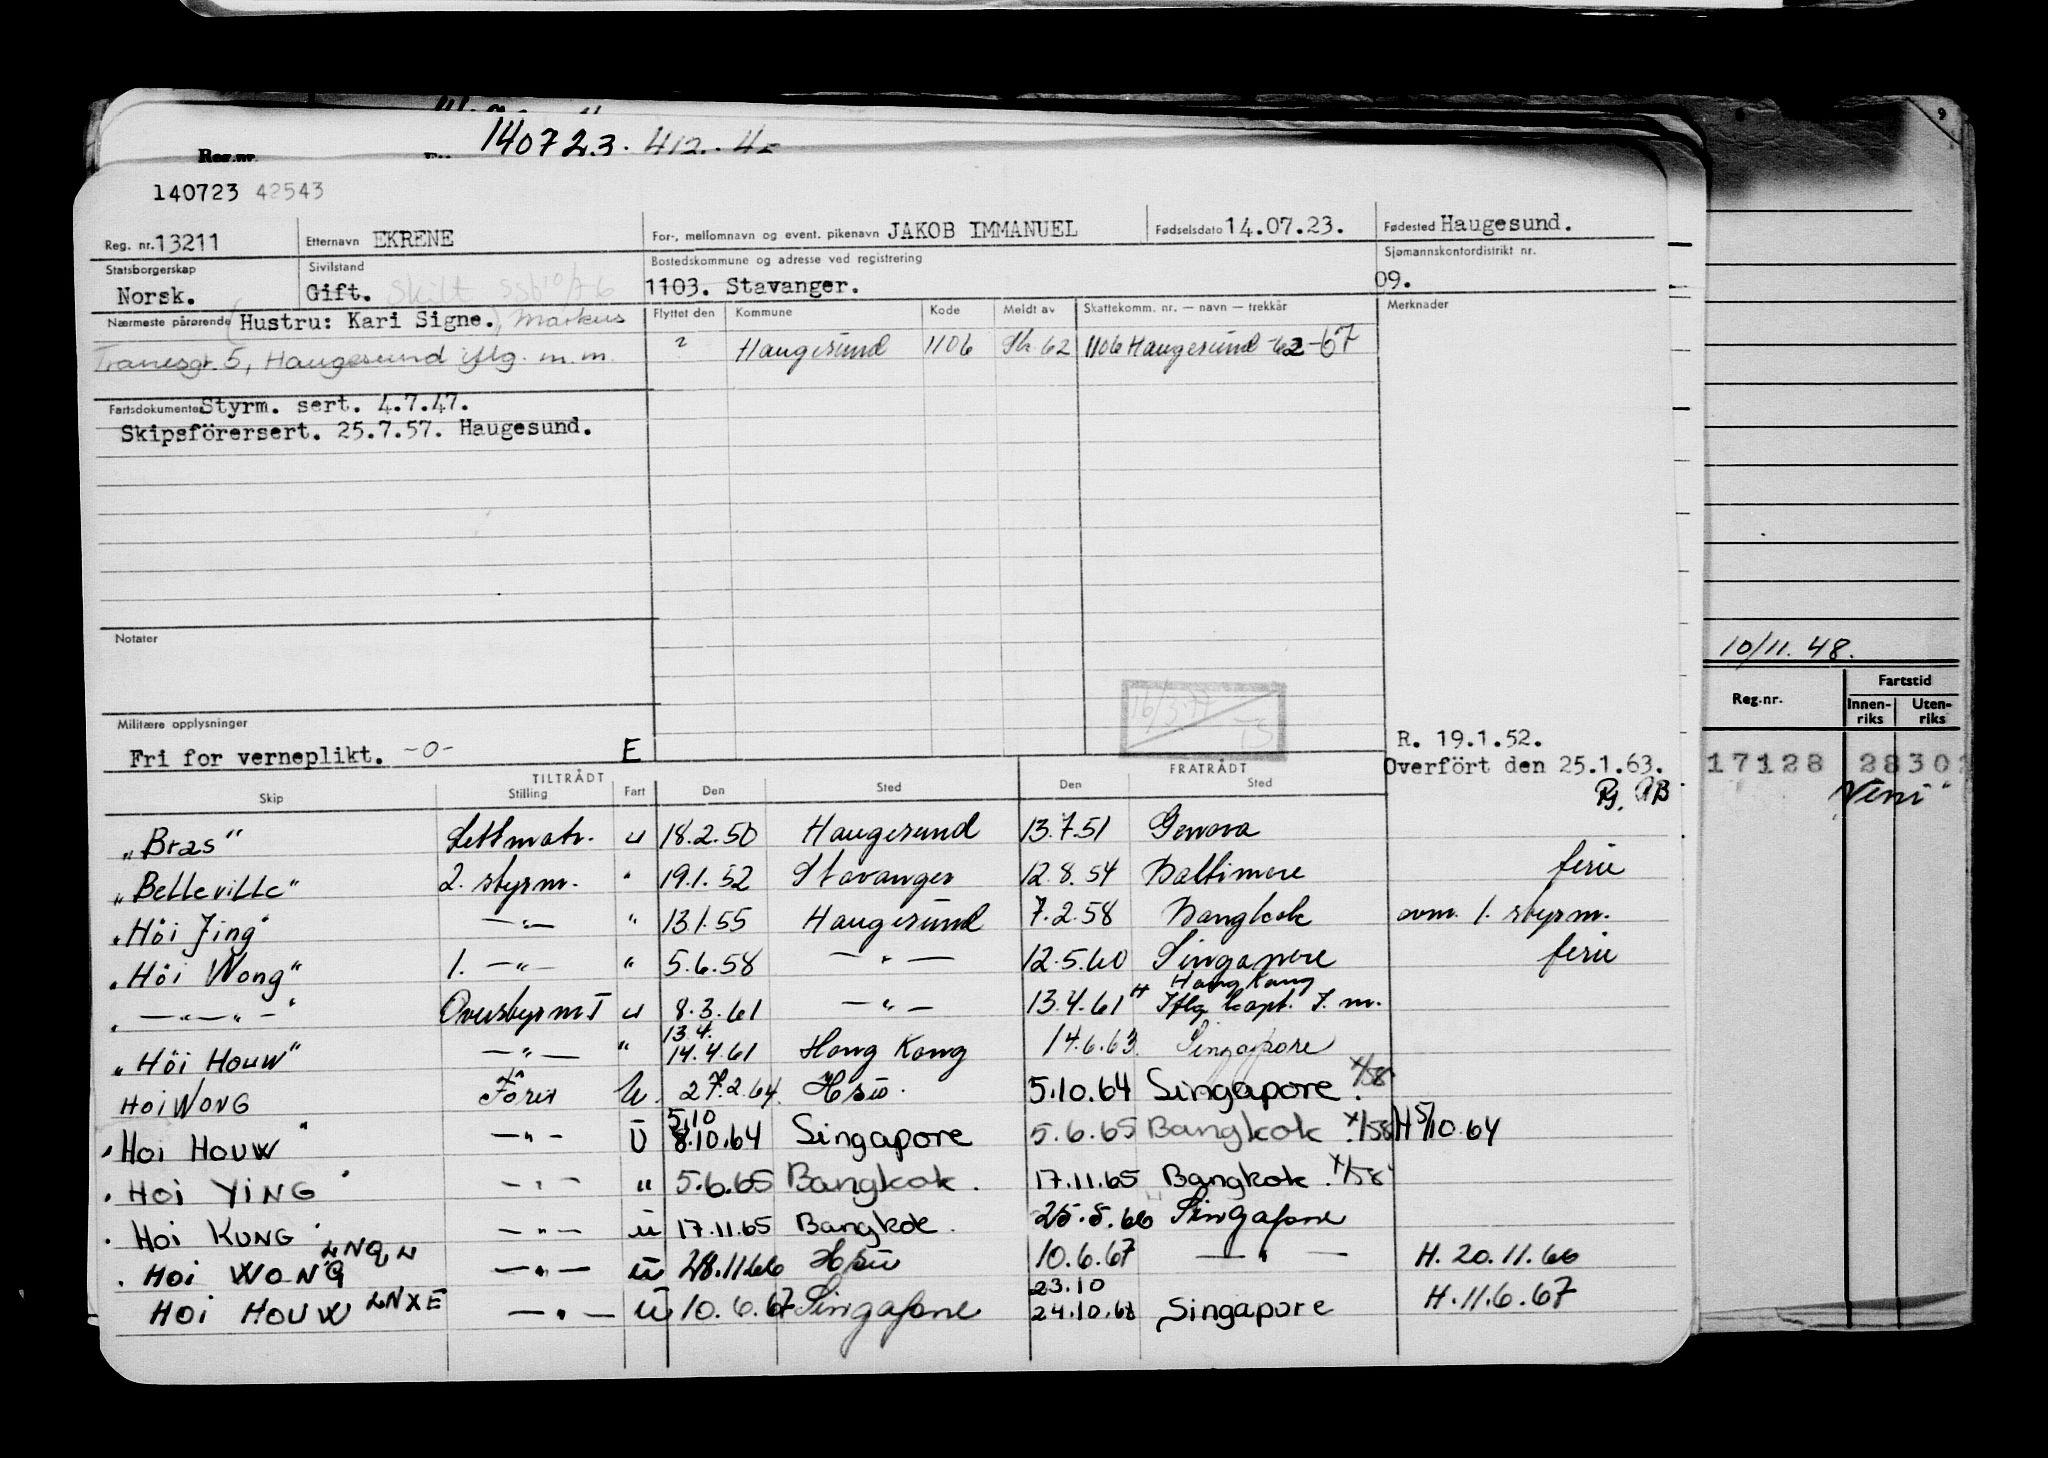 140723. 412. 4
Reg.nr.
140723 42543
Reg. nr. 13211 Etternavn EKRENE For-, mellomnavn og event. pikenavn JAKOB IMMANUEL Fødselsdato 14.07.23. Fødested Haugesund.
Statsborgerskap Norsk. Sivilstand Gift. Skilt SSB 10/76 Bostedskommune og adresse ved registrering 1103. Stavanger. Sjømannskontordistrikt nr. 09.
Nærmeste pårørende (Hustru: Kari Signe.) Markus
Tranesgt. 5, Haugesund iflg. m.m.
Flyttet den Kommune Kode Meldt av Skattekomm. nr. — navn — trekkår Merknader
" Haugesund 1106 Sk 62 1106 Haugesund -62-67
Fartsdokumenter Styrm. sert. 4.7.47.
Skipsförersert. 25.7.57. Haugesund.
Notater
16/5.77 TS
Militære opplysninger
Fri for verneplikt. -0- E
R. 19.1.52.
Overfört den 25.1.63.
TILTRÅDT FRATRÅDT
Skip Stilling Fart Den Sted Den Sted
"Bras" Lettmatr. u 18.2.50 Haugesund 13.7.51 Genova
"Belleville" 2. styrm. " 19.1.52 Stavanger 12.8.54 Baltimore ferie
"Höi Jing" —"— " 13.1.55 Haugesund 7.2.58 Bangkok avm. 1. styrm.
"Höi Wong" 1. —"— " 5.6.58 —"— 12.5.60 Singapore ferie
"—"—"—" Overstyrm I u 8.3.61 —"— 13.4.61 Hong Kong Iflg. kapt. J. m.
"Höi Houw" —"— " 13.4. 14.4.61 Hong Kong 14.6.63. Singapore
HOI WONG Förer U. 27.2.64. Hsu. 5.10.64 Singapore. X/58
"HOI HOUW" —"— U 5.10 8.10.64 Singapore 5.6.65 Bangkok. X/58 H 5/10.64
"HOI YING" —"— " 5.6.65 Bangkok. 17.11.65 Bangkok. X/58
"HOI KUNG" —"— U 17.11.65 Bangkok. 25.5.66 Singapore
"HOI WONG LNQL —"— U 28.11.66 Hsu 10.6.67 —"— H. 20.11.66
HOI HOUW LNXE —"— U 10.6.67 Singapore 23.10 24.10.68 Singapore H.11.6.67
9
10/11. 48.
Reg.nr. Fartstid
Innenriks Utenriks
17128 28302
"Veni"